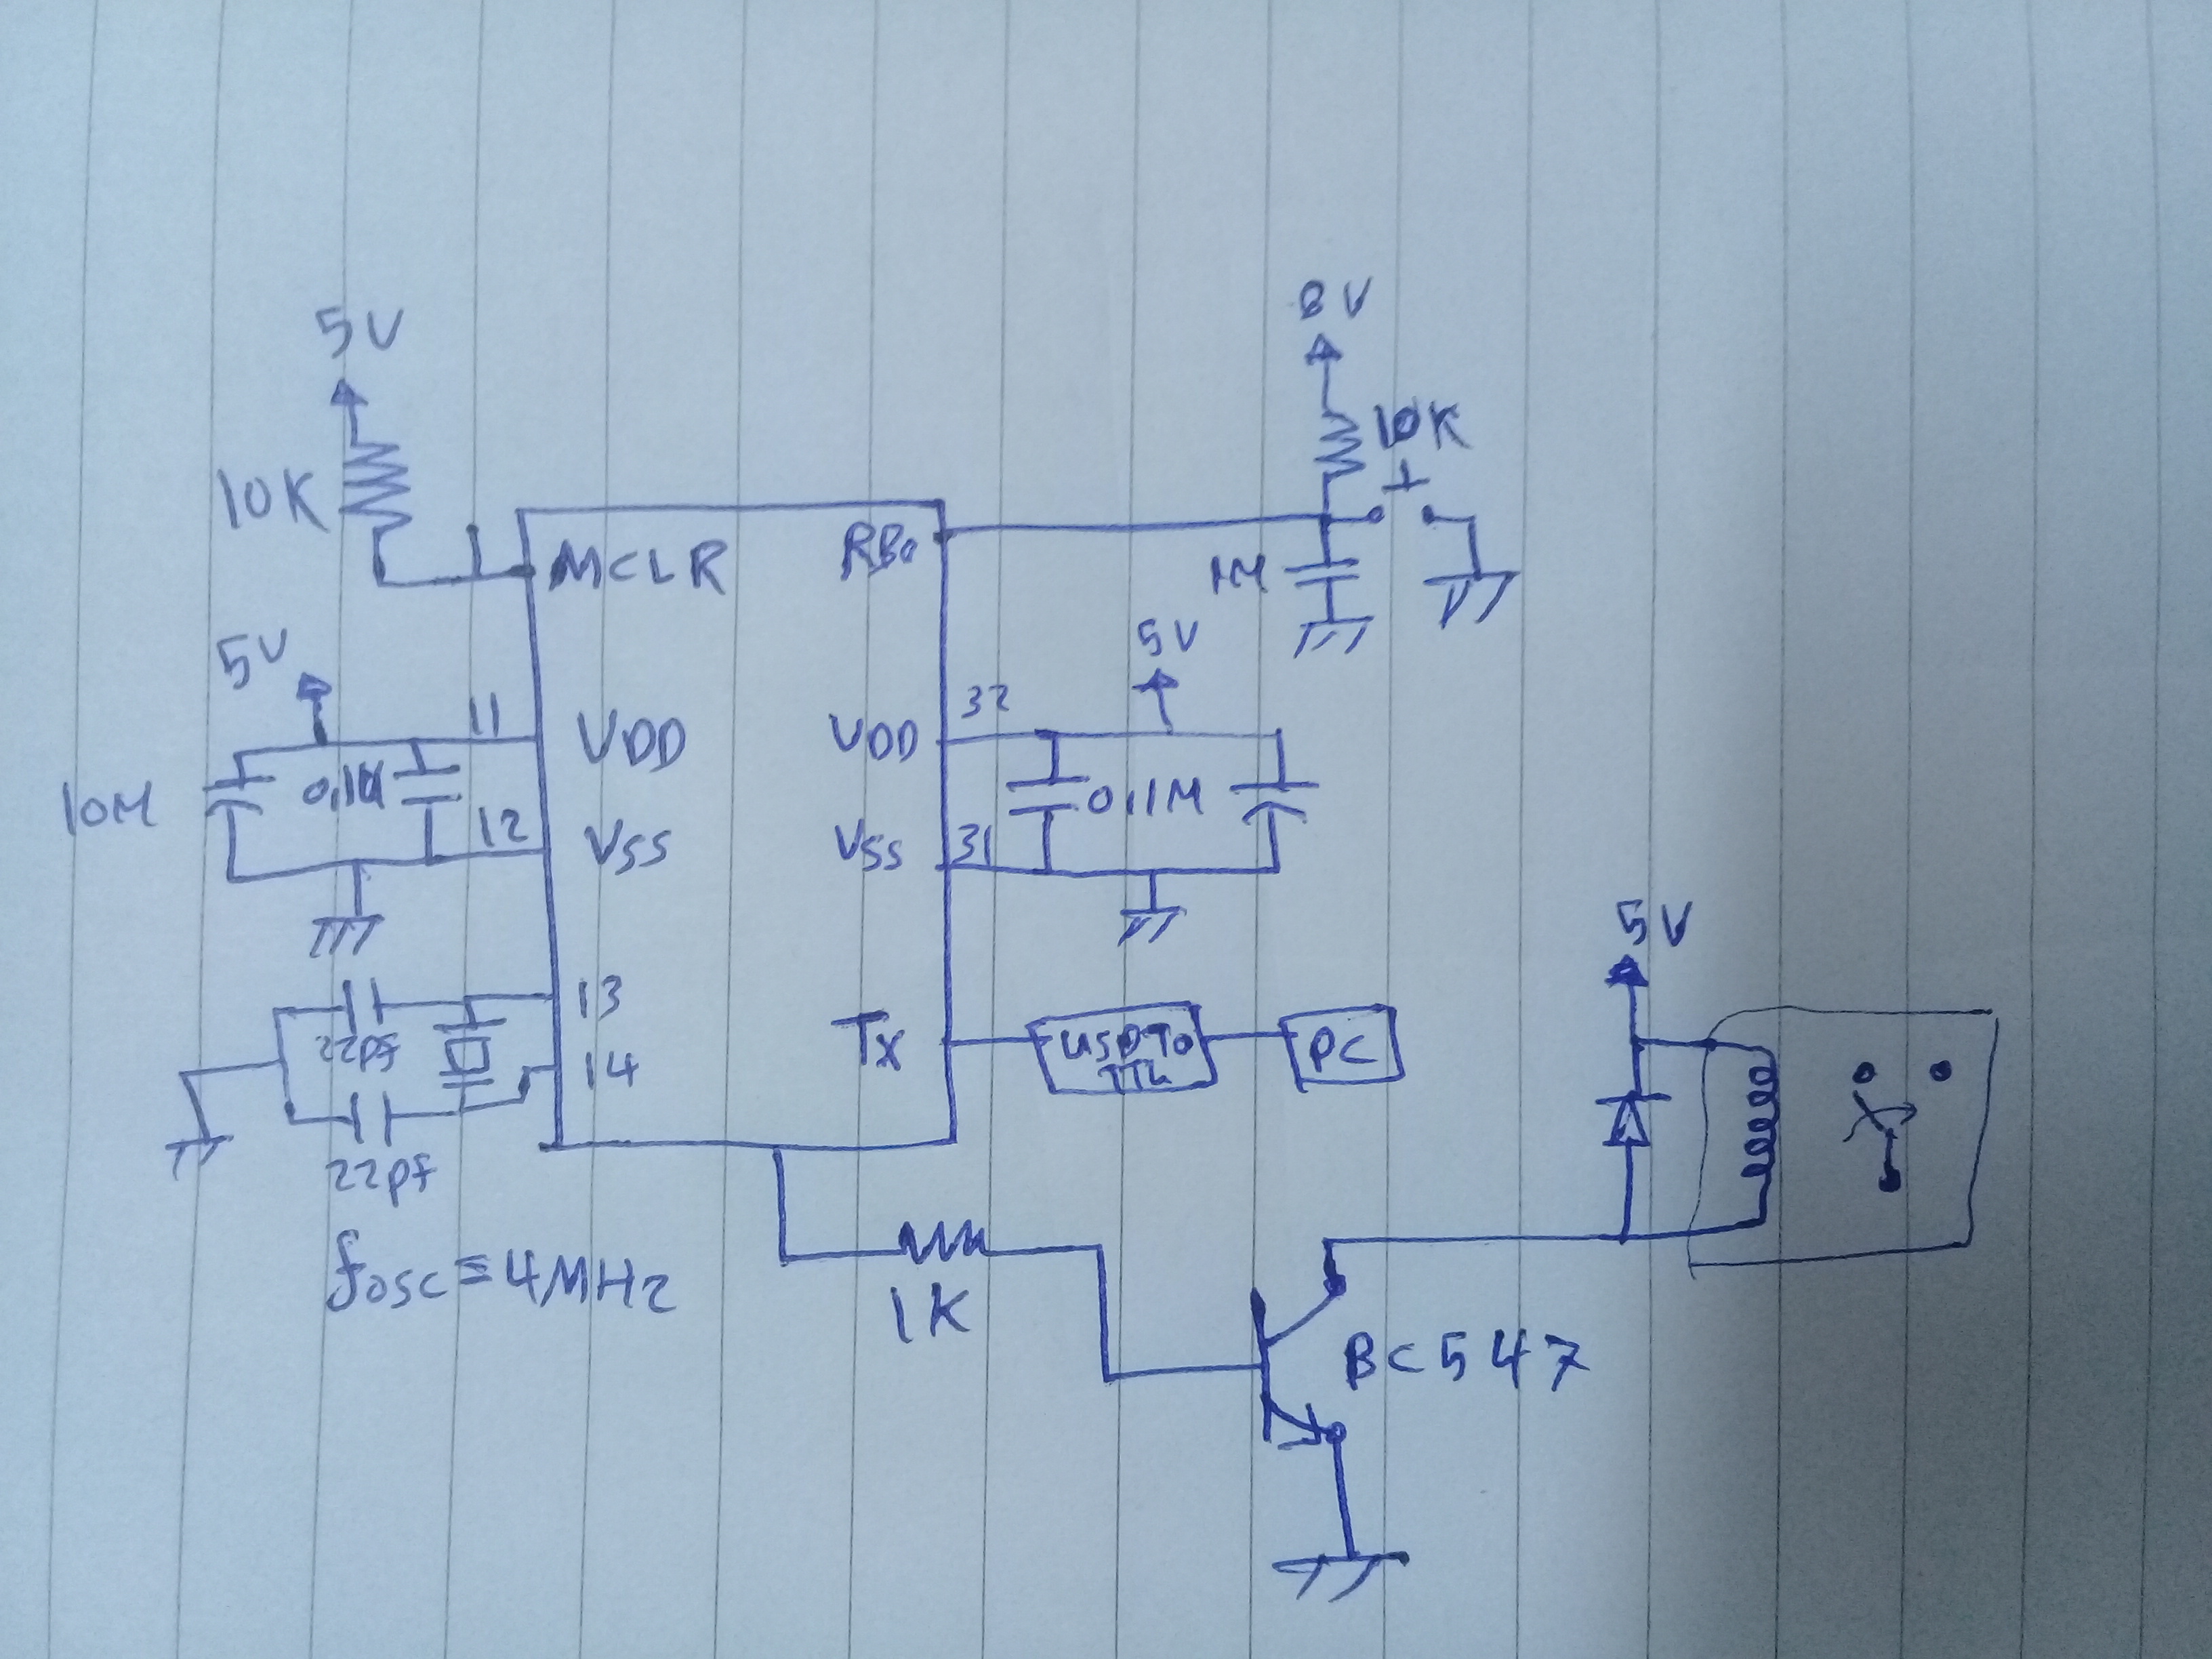 5V
10K
MCLR
RB0
8V
10K
1M
5V
11
VDD
10M
0,1M
12
VSS
VDD
32
5V
0,1M
VSS
31
13
14
22pf
22pf
fosc = 4MHz
Tx
TTL
PC
1K
5V
BC547